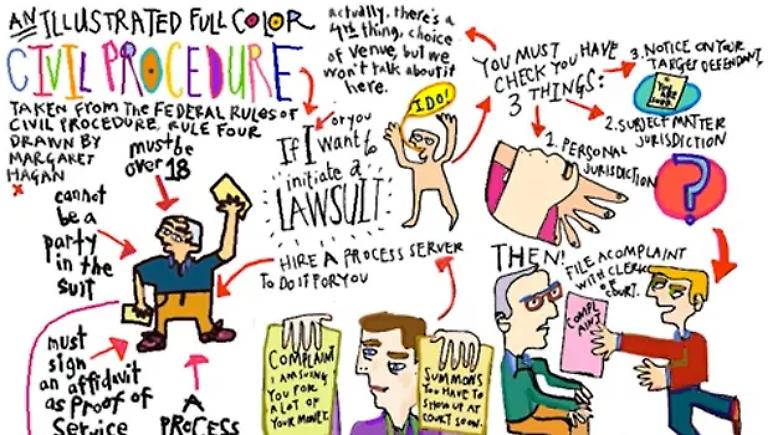 AN ILLUSTRATED FULL COLOR
CIVIL PROCEDURE
TAKEN FROM THE FEDERAL RULES OF
CIVIL PROCEDURE, RULE FOUR
DRAWN BY
MARGARET
HAGAN
or you
If I want to
initiate a
LAWSUIT
I DO!
YOU MUST
CHECK YOU HAVE
3 THINGS:
actually, there's a
4th thing, choice
of venue, but we
won't talk about it
here.
1. PERSONAL
JURISDICTION
2. SUBJECT MATTER
JURISDICTION
?
3. NOTICE ON YOUR
TARGET DEFENDANT
YOU ARE
THEN!
FILE A COMPLAINT
WITH CLERK
OF
COURT.
COMPL
AINT
COMPLAINT
I AM SUING
YOU FOR
A LOT OF
YOUR MONEY.
SUMMONS
YOU HAVE TO
SHOW UP AT
COURT SOON.
HIRE A PROCESS SERVER
TO DO IT FOR YOU
must be
over 18
cannot
be a
party
in the
suit
must
sign
an affidavit
as proof of
service
A
PROCESS